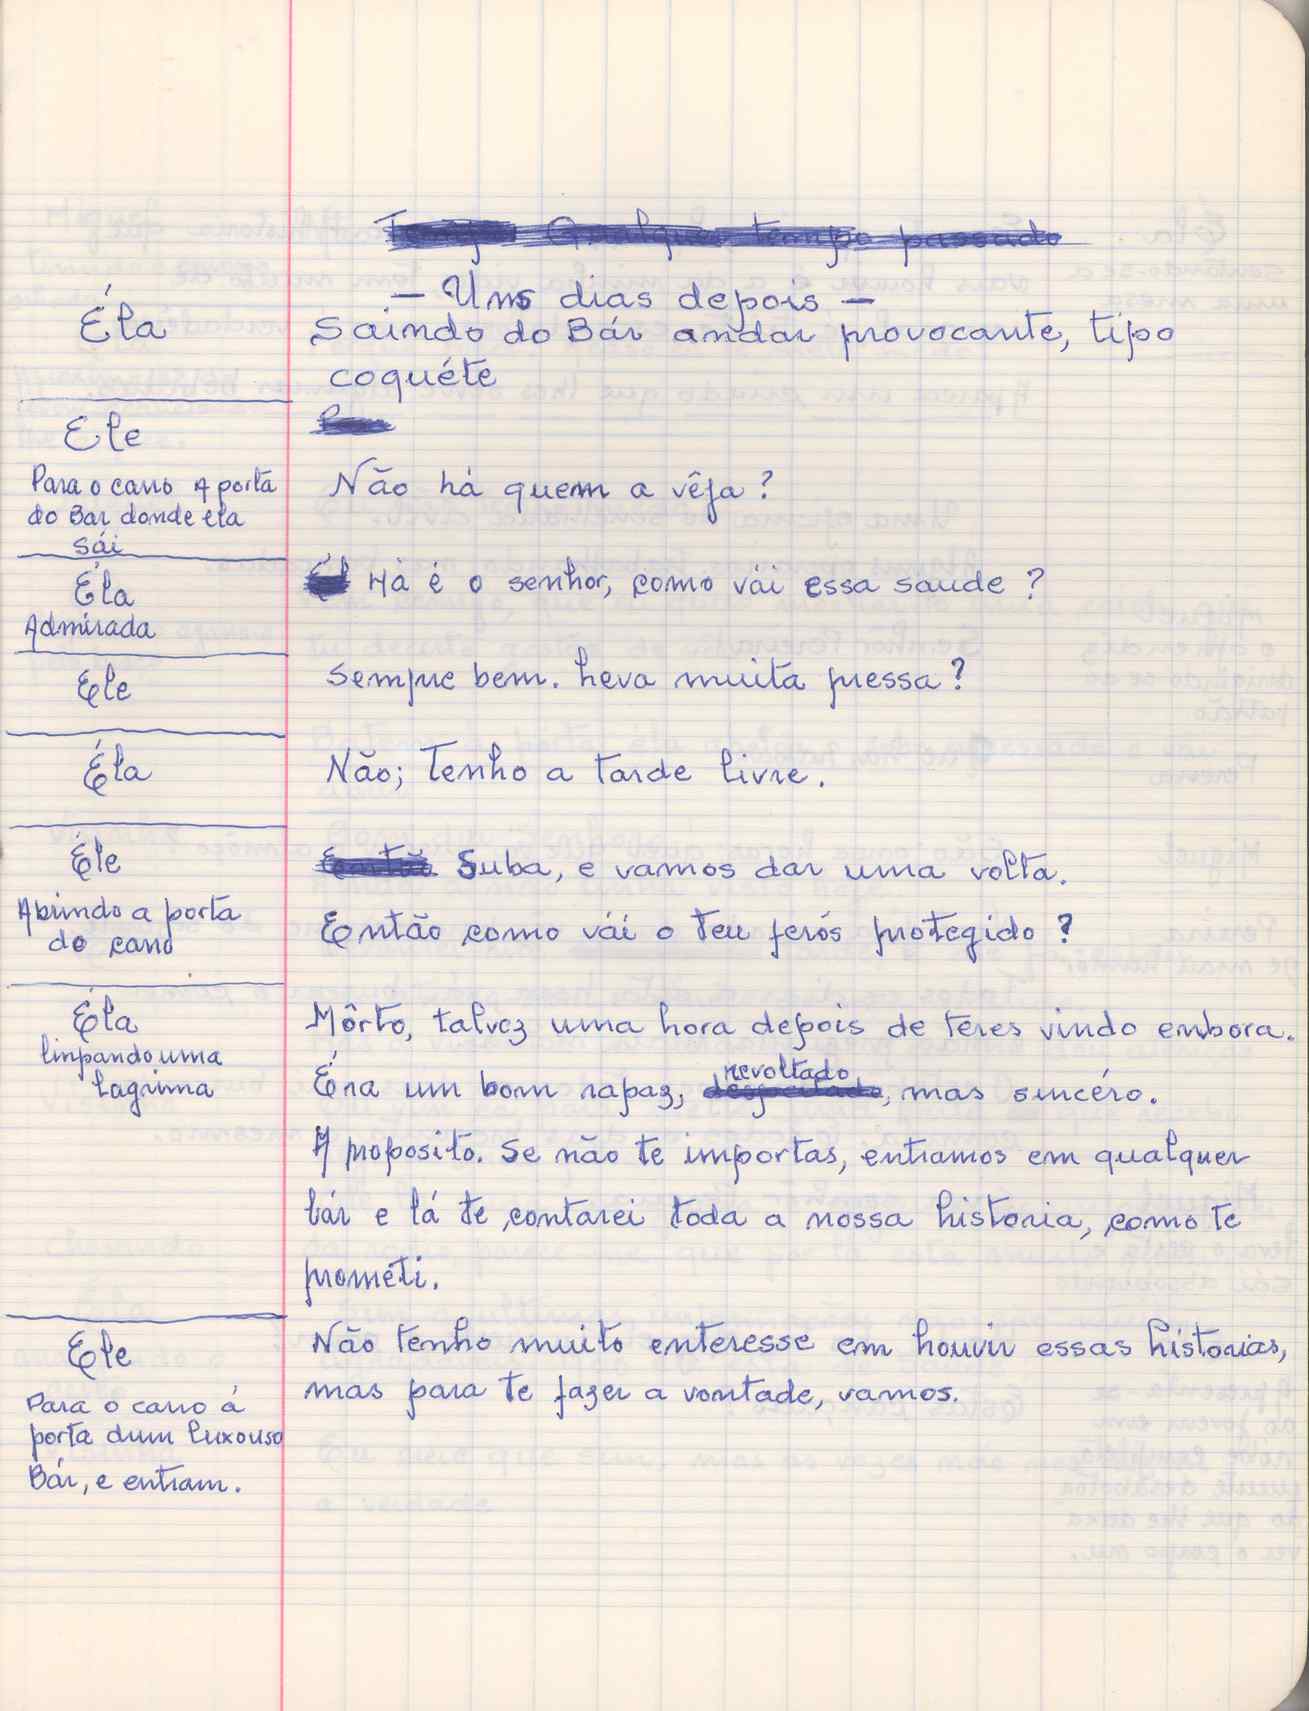 Qualquer tempo passado
— Uns dias depois —
Éla
Saindo do Bár andar provocante, tipo
coquéte
Ele
Para o carro A porta
do Bar donde ela
sái
Não há quem a vêja?
Éla
Admirada
Há é o senhor, como vái essa saude?
Ele
Sempre bem. Leva muita pressa?
Éla
Não; Tenho a tarde livre.
Éle
Abrindo a porta
do carro
Então Suba, e vamos dar uma volta.
Então como vái o teu ferós protegido?
Éla
linpando uma
lagrima
Môrto, talvez uma hora depois de teres vindo embora.
revoltado
Éra um bom rapaz, , mas sincéro.
A proposito. Se não te importas, entramos em qualquer
bár e lá te contarei toda a nossa historia, como te
prométi.
Ele
Para o carro á
porta dum luxouso
Bár, e entram.
Não tenho muito enteresse em houvir essas historias,
mas para te fazer a vontade, vamos.